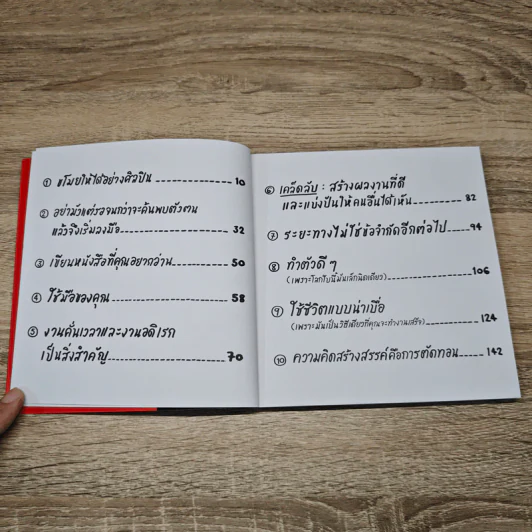 ① ขโมยให้ได้อย่างศิลปิน 10
② อย่ามัวแต่รอจนกว่าจะค้นพบตัวตน
แล้วจึงเริ่มลงมือ 32
③ เขียนหนังสือที่คุณอยากอ่าน 50
④ ใช้มือของคุณ 58
⑤ งานคั่นเวลาและงานอดิเรก
เป็นสิ่งสำคัญ 70
⑥ เคล็ดลับ : สร้างผลงานที่ดี
และแบ่งปันให้คนอื่นได้เห็น 82
⑦ ระยะทางไม่ใช่ข้อจำกัดอีกต่อไป 94
⑧ ทำตัวดีๆ
(เพราะโลกใบนี้มันเล็กนิดเดียว) 106
⑨ ใช้ชีวิตแบบน่าเบื่อ
(เพราะมันเป็นวิธีเดียวที่คุณจะทำงานเสร็จ) 124
⑩ ความคิดสร้างสรรค์คือการตัดทอน 142